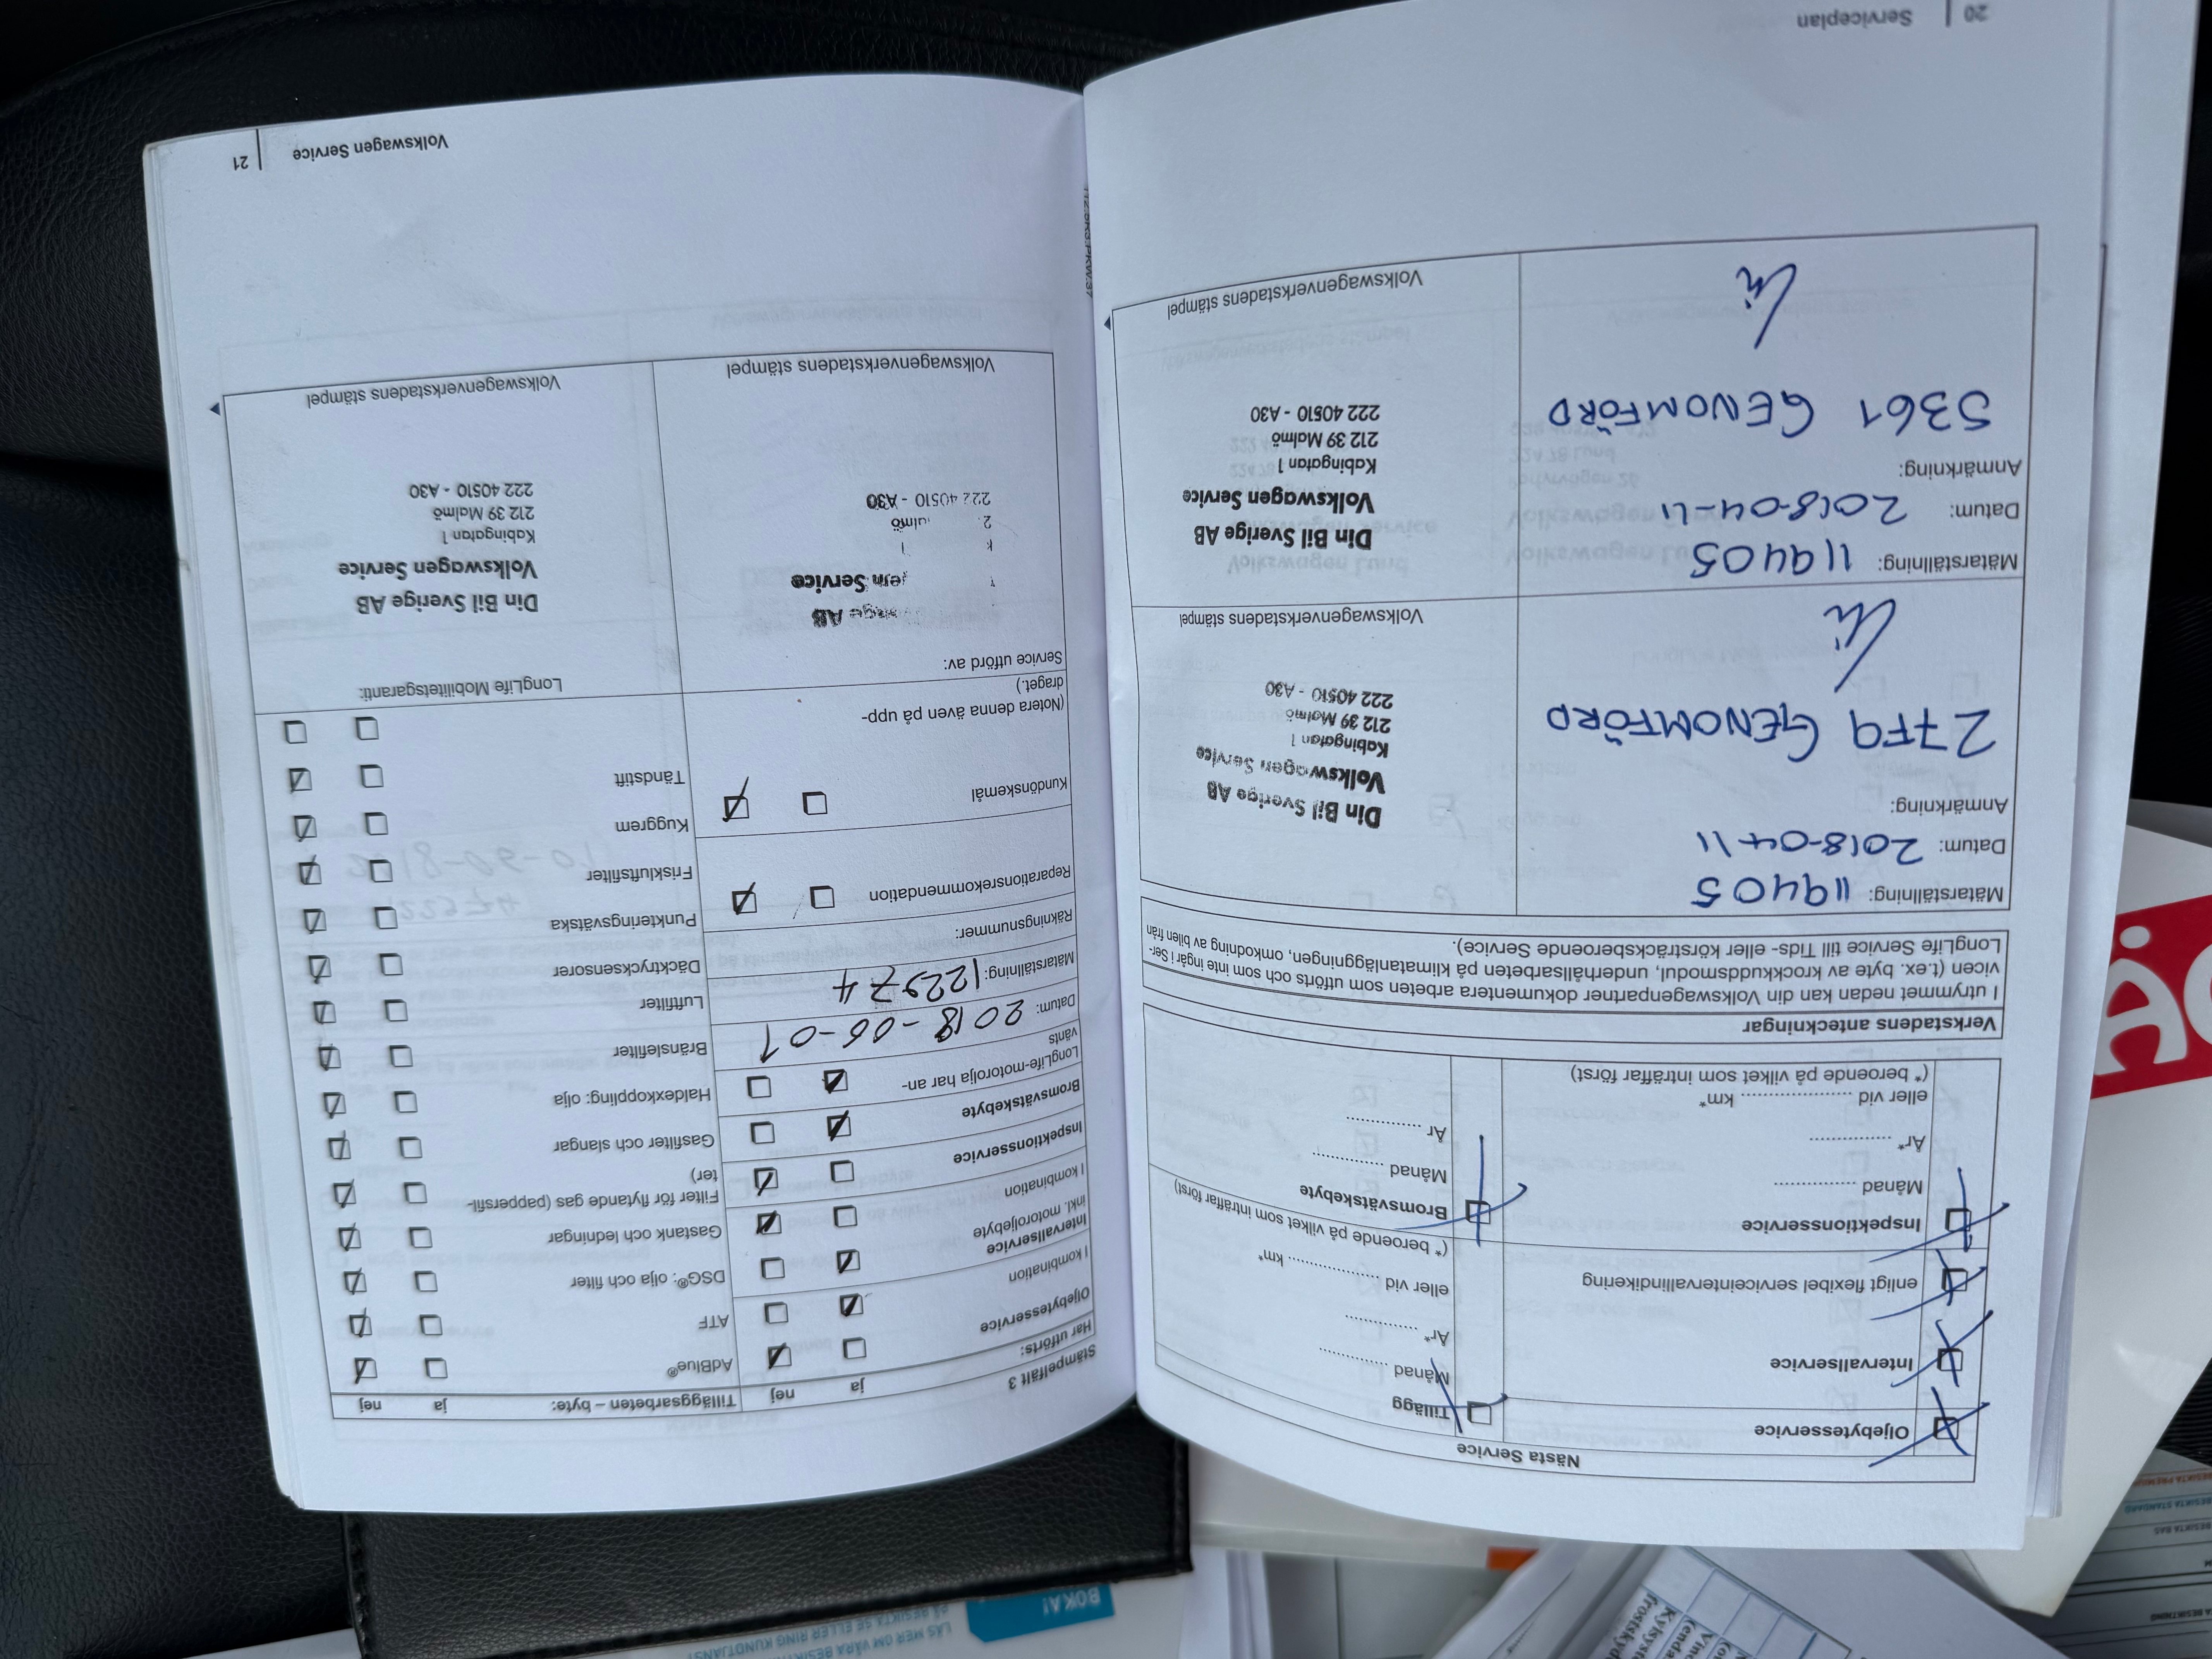 Nästa Service
Oljebytesservice
Intervallservice
enligt flexibel serviceintervallindikering
Inspektionsservice
Månad ................
År* ................
eller vid ...................... km*
(* beroende på vilket som inträffar först)
Tillägg
Månad ..............
År* ..............
eller vid .................. km*
(* beroende på vilket som inträffar först)
Bromsvätskebyte
Månad ..............
År ..............
Verkstadens anteckningar
I utrymmet nedan kan din Volkswagenpartner dokumentera arbeten som utförts och som inte ingår i Ser-
vicen (t.ex. byte av krockkuddsmodul, underhållsarbeten på klimatanläggningen, omkodning av bilen från
LongLife Service till Tids- eller körsträcksberoende Service).
Mätarställning: 119405
Datum: 2018-04-11
Anmärkning:
27F9 GENOMFÖRD
Din Bil Sverige AB
Volkswagen Service
Kabingatan 1
212 39 Malmö
222 40510 - A30
Volkswagenverkstadens stämpel
Mätarställning: 119405
Datum: 2018-04-11
Anmärkning:
5361 GENOMFÖRD
Din Bil Sverige AB
Volkswagen Service
Kabingatan 1
212 39 Malmö
222 40510 - A30
Volkswagenverkstadens stämpel
20 | Serviceplan
Stämpelfält 3
Har utförts:
ja nej
Oljebytesservice
I kombination
Intervallservice
inkl. motoroljebyte
I kombination
Inspektionsservice
Bromsvätskebyte
LongLife-motorolja har an-
vänts
Datum: 2018-06-01
Mätarställning: 122974
Räkningsnummer:
Reparationsrekommendation
Kundönskemål
(Notera denna även på upp-
draget.)
Service utförd av:
AB
Service
222 40510 - A30
Volkswagenverkstadens stämpel
Tilläggsarbeten – byte: ja nej
AdBlue®
ATF
DSG®: olja och filter
Gastank och ledningar
Filter för flytande gas (pappersfil-
ter)
Gasfilter och slangar
Haldexkoppling: olja
Bränslefilter
Luftfilter
Däcktrycksensorer
Punkteringsvätska
Friskluftsfilter
Kuggrem
Tändstift
LongLife Mobilitetsgaranti:
Din Bil Sverige AB
Volkswagen Service
Kabingatan 1
212 39 Malmö
222 40510 - A30
Volkswagenverkstadens stämpel
Volkswagen Service | 21
BOKA!